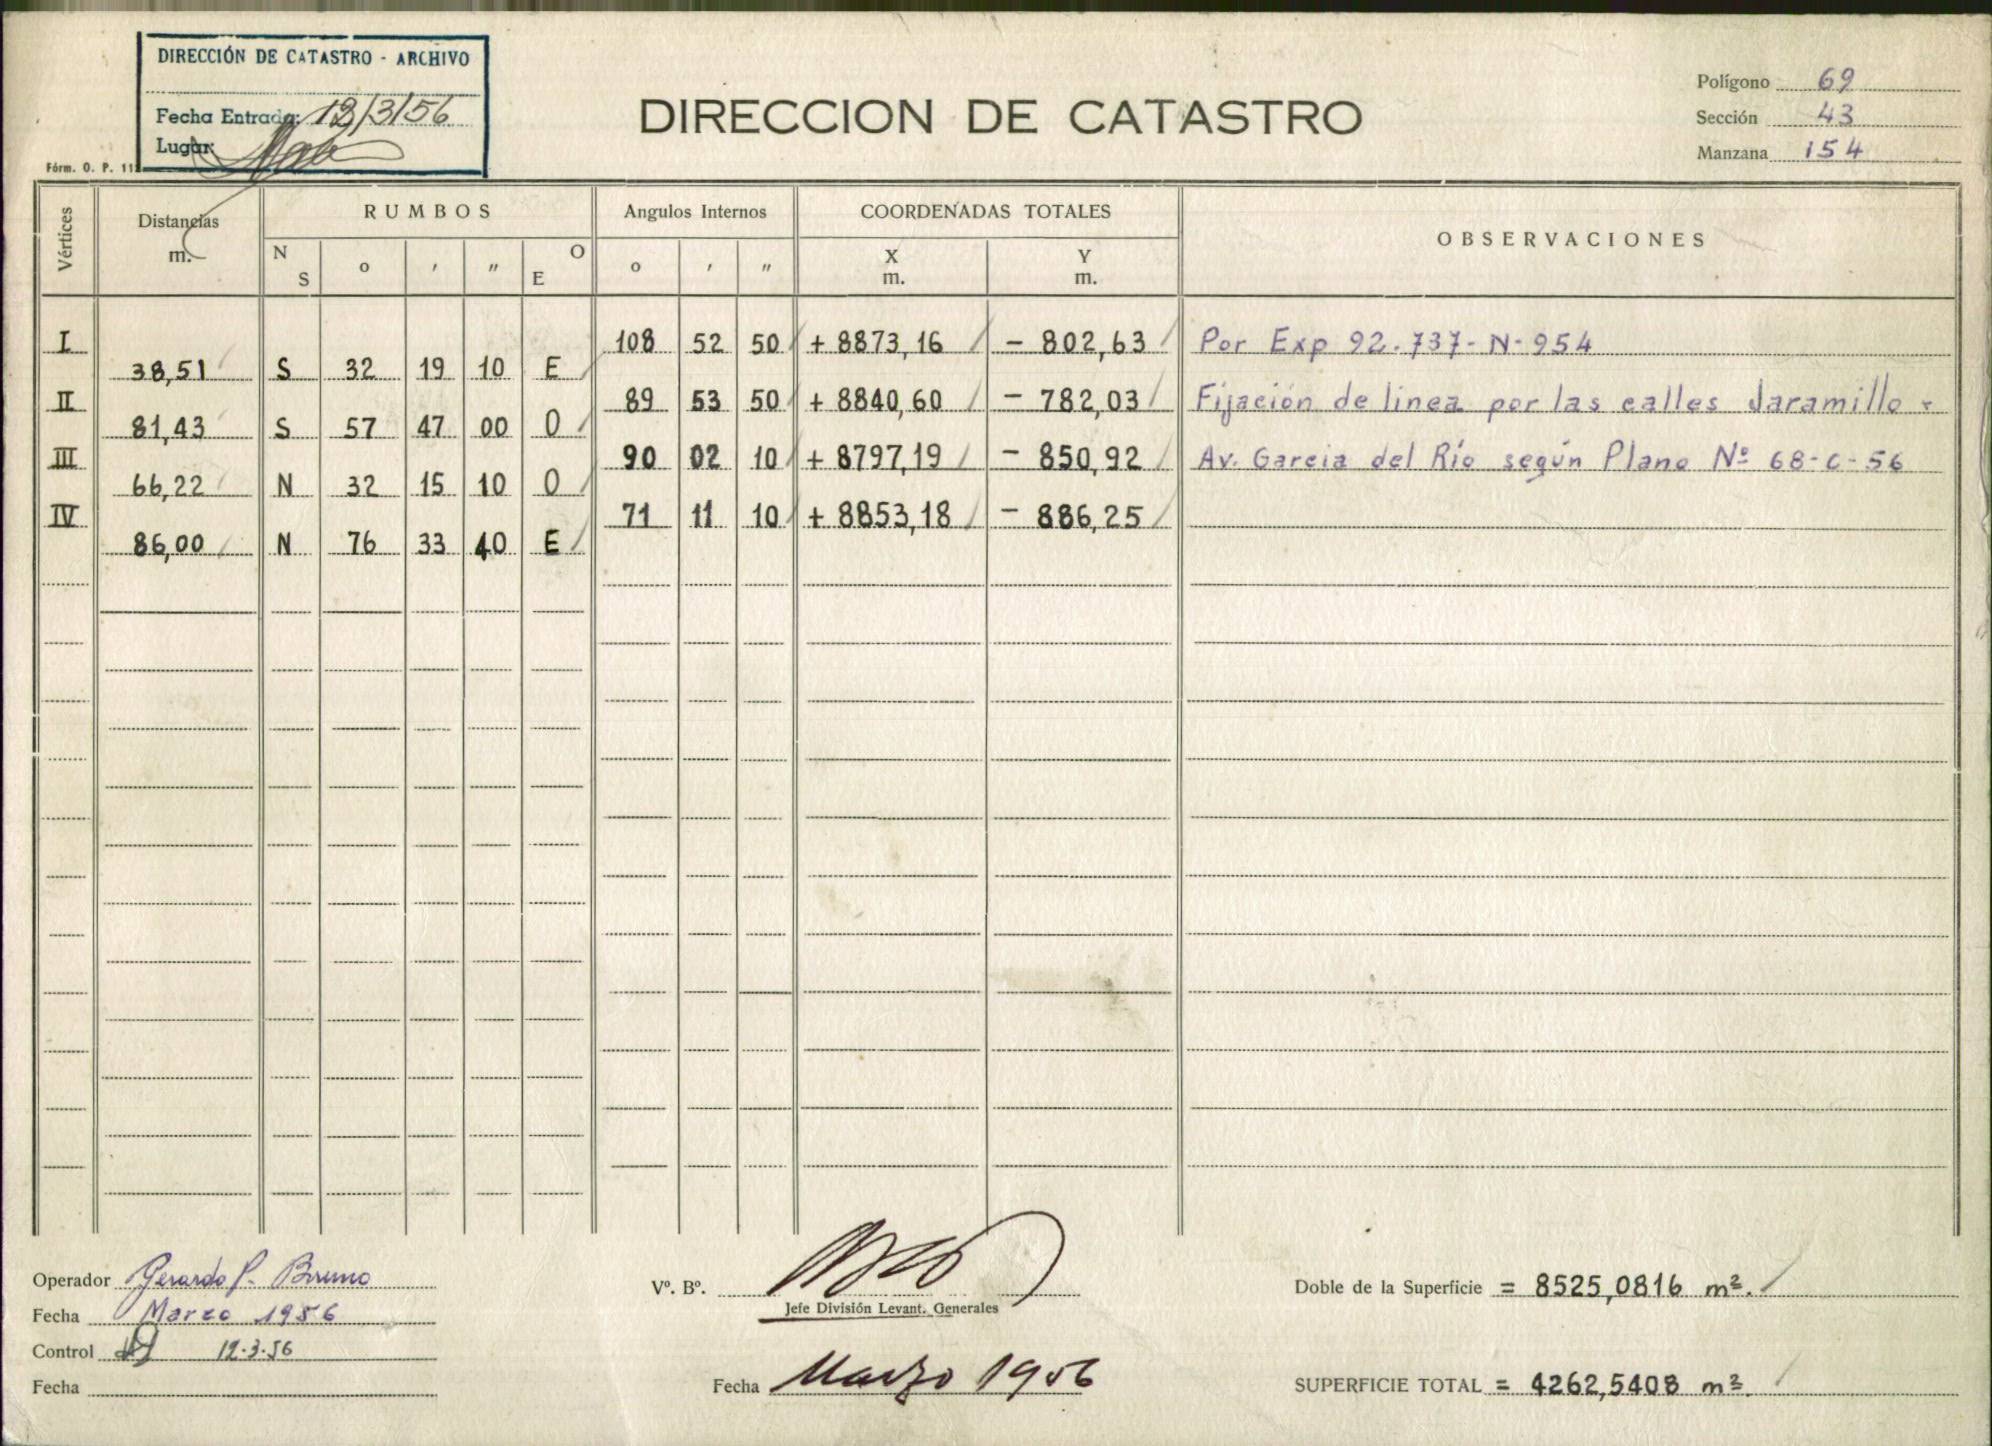 DIRECCIÓN DE CATASTRO - ARCHIVO
Fecha Entrada: 13/3/56
Lugar:
Fórm. O. P. 11
DIRECCION DE CATASTRO
Polígono 69
Sección 43
Manzana 154
Vértices Distancias m. RUMBOS Angulos Internos COORDENADAS TOTALES OBSERVACIONES
N S o ′ ″ O E o ′ ″ X m. Y m.
I 108 52 50 + 8873,16 - 802,63 Por Exp 92.737-N-954
38,51 S 32 19 10 E
II 89 53 50 + 8840,60 - 782,03 Fijación de linea por las calles Jaramillo -
81,43 S 57 47 00 O
III 90 02 10 + 8797,19 - 850,92 Av. Garcia del Río según Plano Nº 68-C-56
66,22 N 32 15 10 O
IV 71 11 10 + 8853,18 - 886,25
86,00 N 76 33 40 E
Operador Gerardo P. Bruno
Fecha Marzo 1956
Control 12-3-56
Fecha
Vº. Bº.
Jefe División Levant. Generales
Fecha Marzo 1956
Doble de la Superficie = 8525,0816 m².
SUPERFICIE TOTAL = 4262,5408 m².